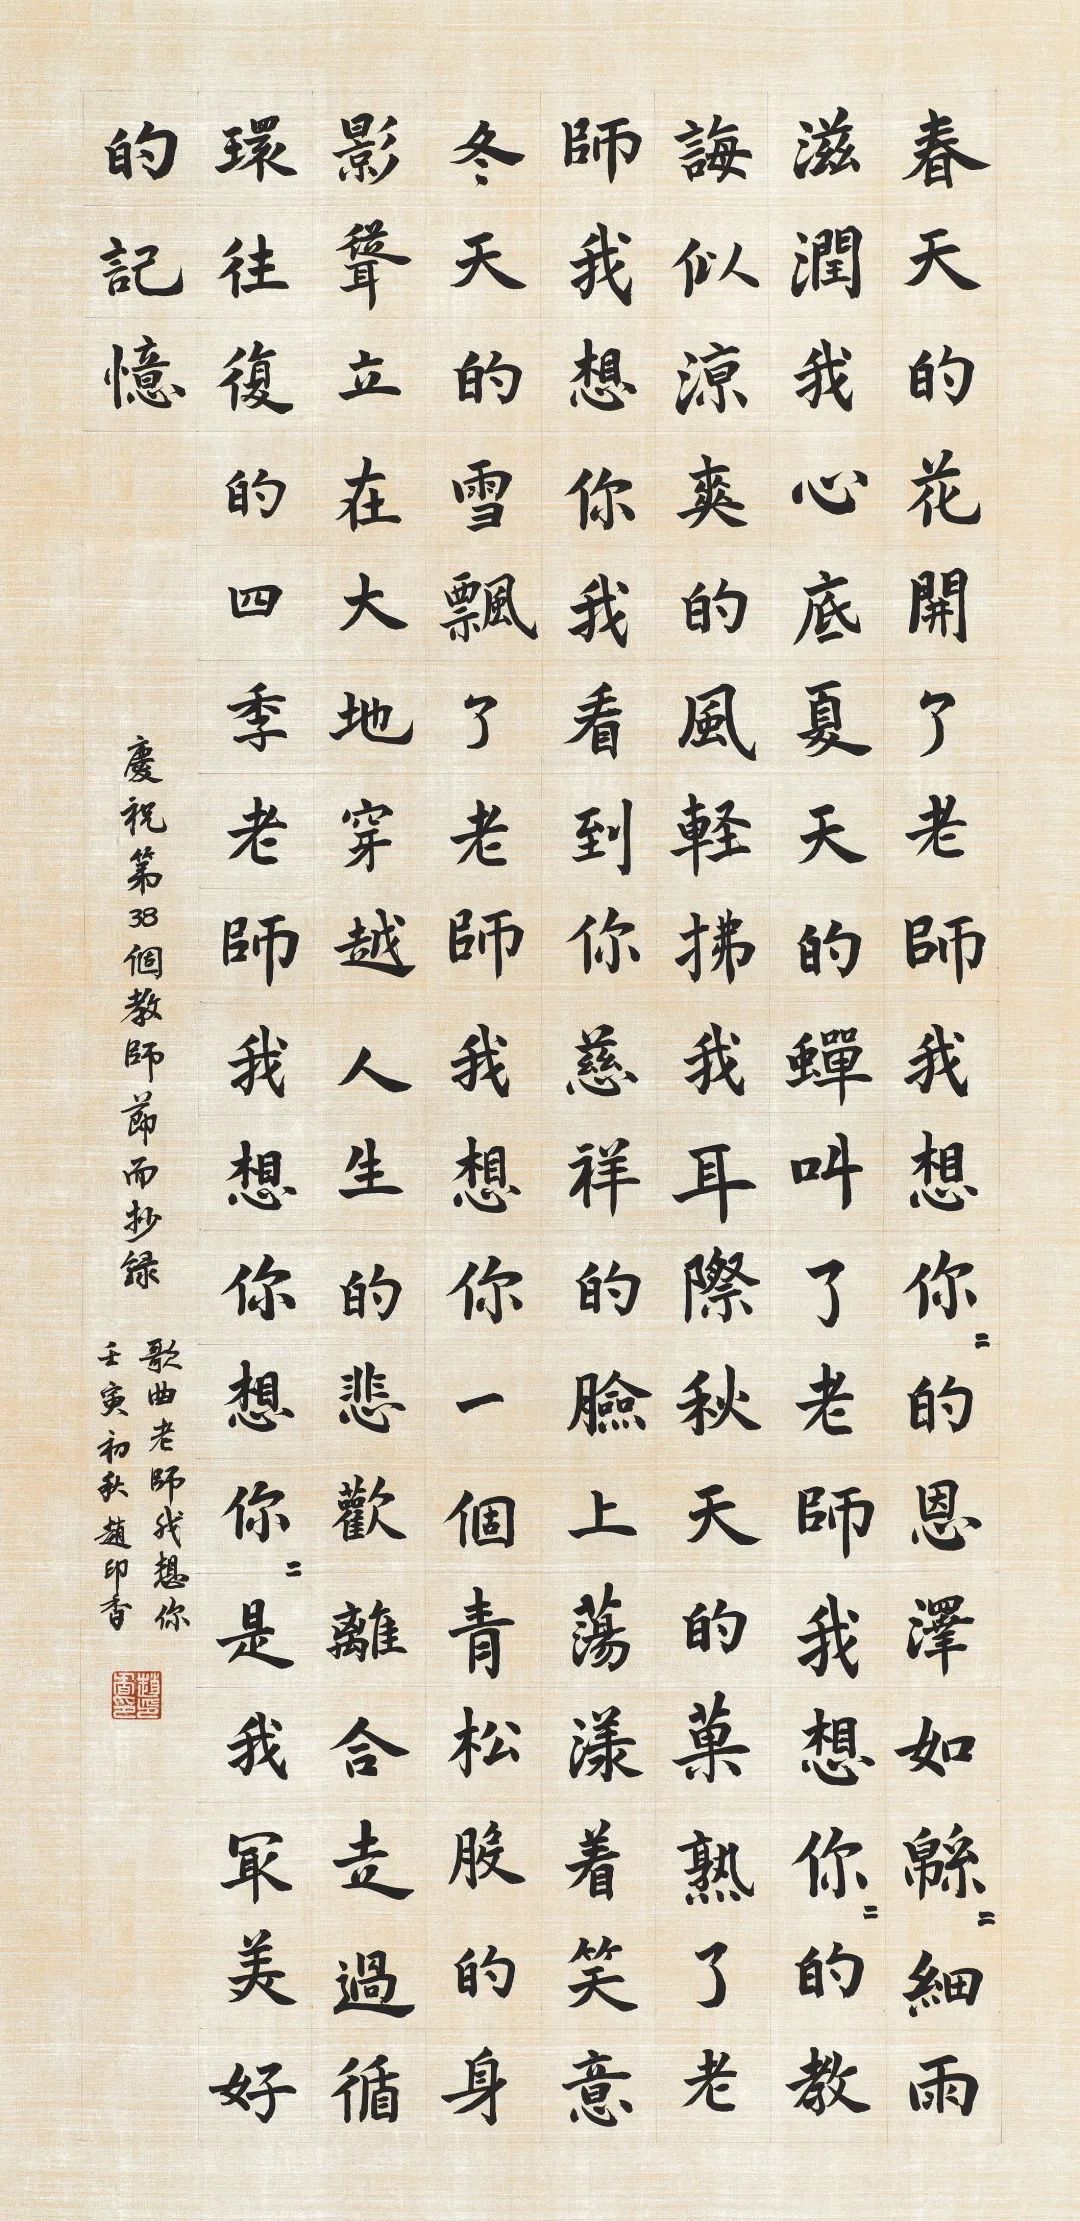 春天的花開了老師我想你〻的恩澤如緜〻細雨
滋潤我心底夏天的蟬叫了老師我想你〻的教
誨似涼爽的風軽拂我耳際秋天的菓熟了老
師我想你我看到你慈祥的臉上蕩漾着笑意
冬天的雪飄了老師我想你一個青松般的身
影聳立在大地穿越人生的悲歡離合走過循
環往復的四季老師我想你想你〻是我冣美好
的記憶
慶祝第38個教師節而抄録
歌曲老師我想你
壬寅初秋趙印香
趙印香印